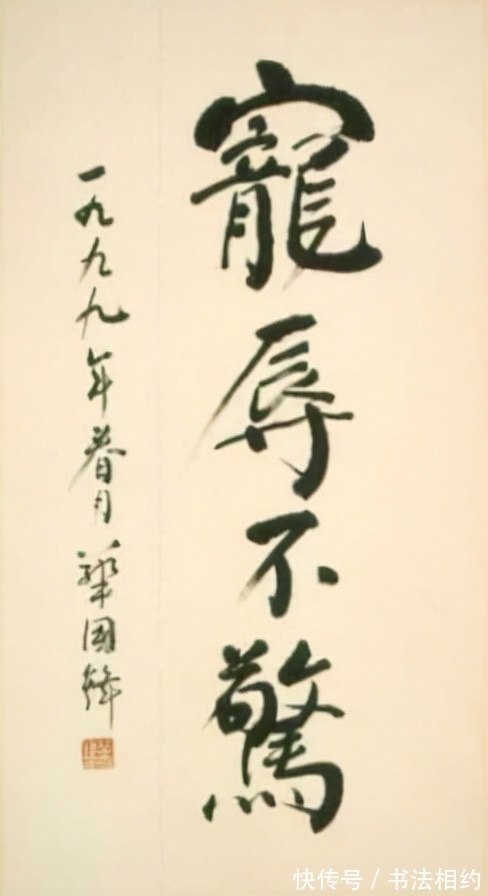 寵辱不驚
一九九九年春月 華國鋒
快传号 / 书法相约